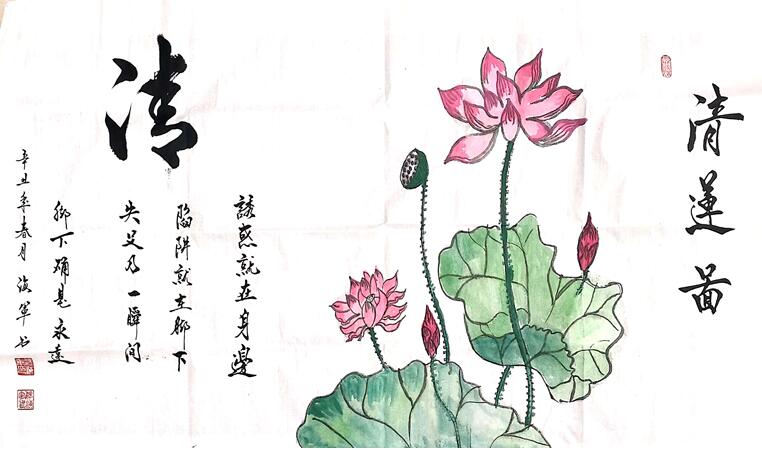 清蓮圖
清
誘惑就在身邊
陷阱就在脚下
失足乃一瞬间
脚下是永遠
辛丑年春月海軍书